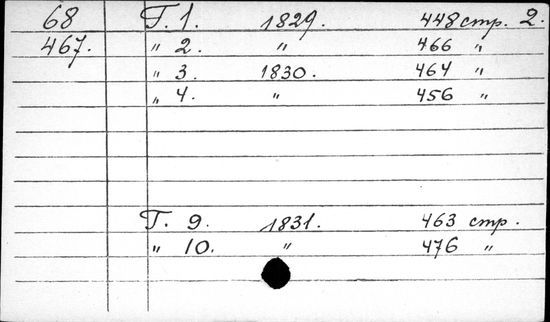 68 Т. 1. 1829. 448 стр. 2.
467. " 2. " 466 "
" 3. 1830. 464 "
" 4. " 456 "
Т. 9. 1831. 463 стр.
" 10. " 476 "